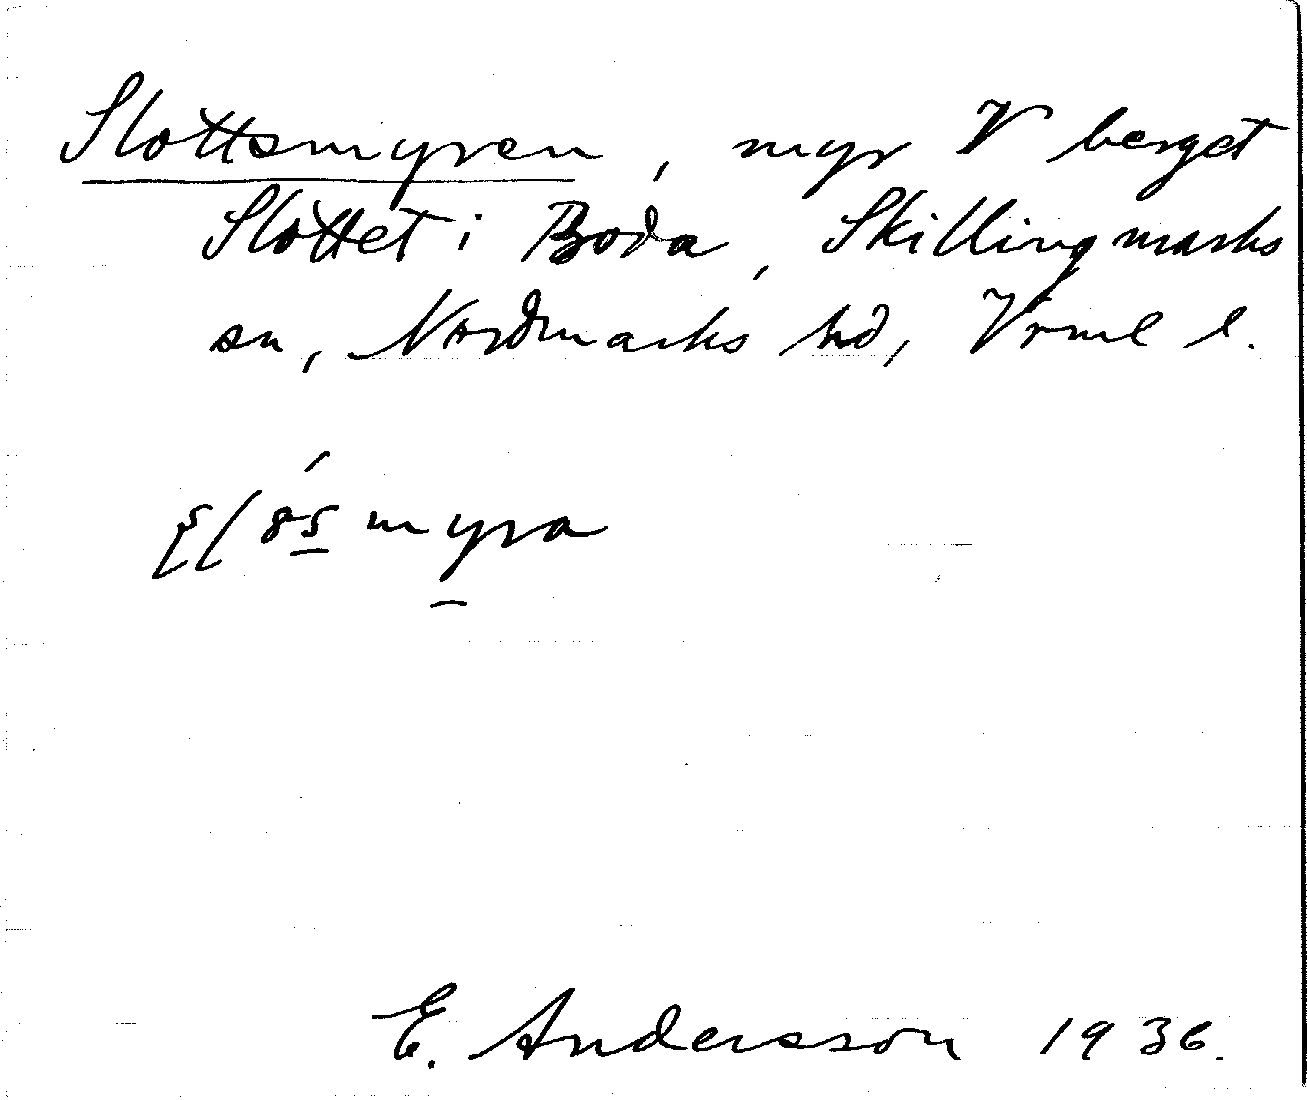 Slottsmyren, myr V berget
Slottet i Boda, Skillingmarks
sn, Nordmarks hd, Vrml l.
myra
E. Andersson 1936.